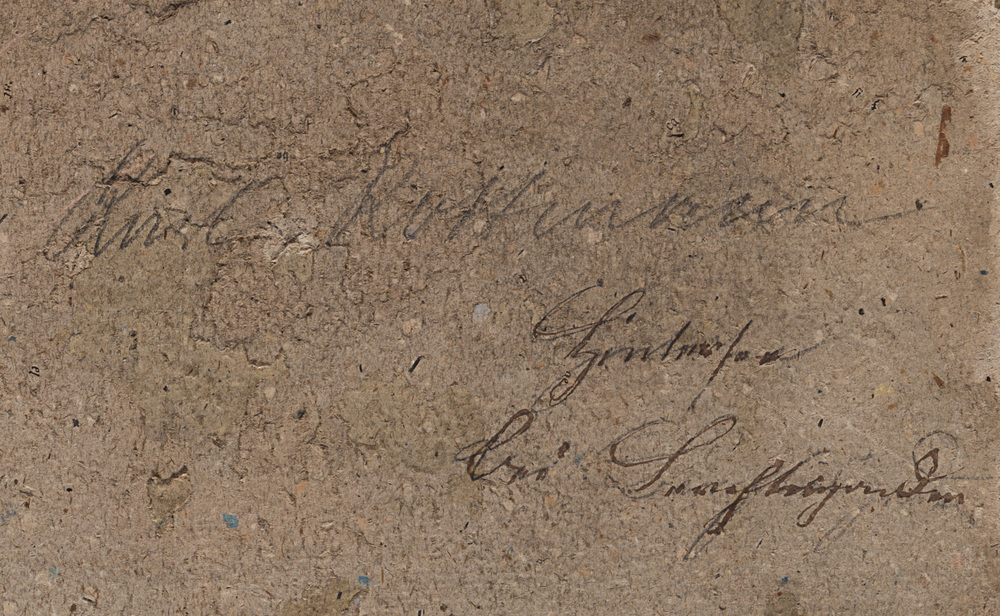 Karl Rottmann
Hintersee
bei Berchtesgaden